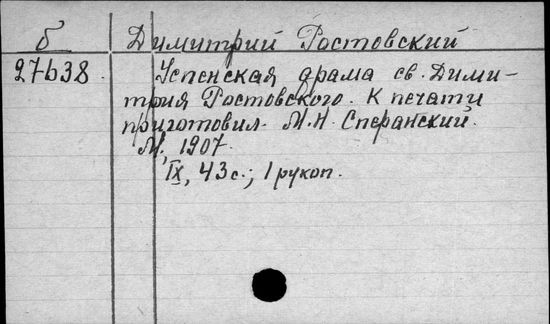 б Димитрий Ростовский
27638. Успенская драма св. Дими-
трия Ростовского. К печати
приготовил М.Н. Сперанский.
М., 1907.
IX, 43 с.; 1 рукоп.